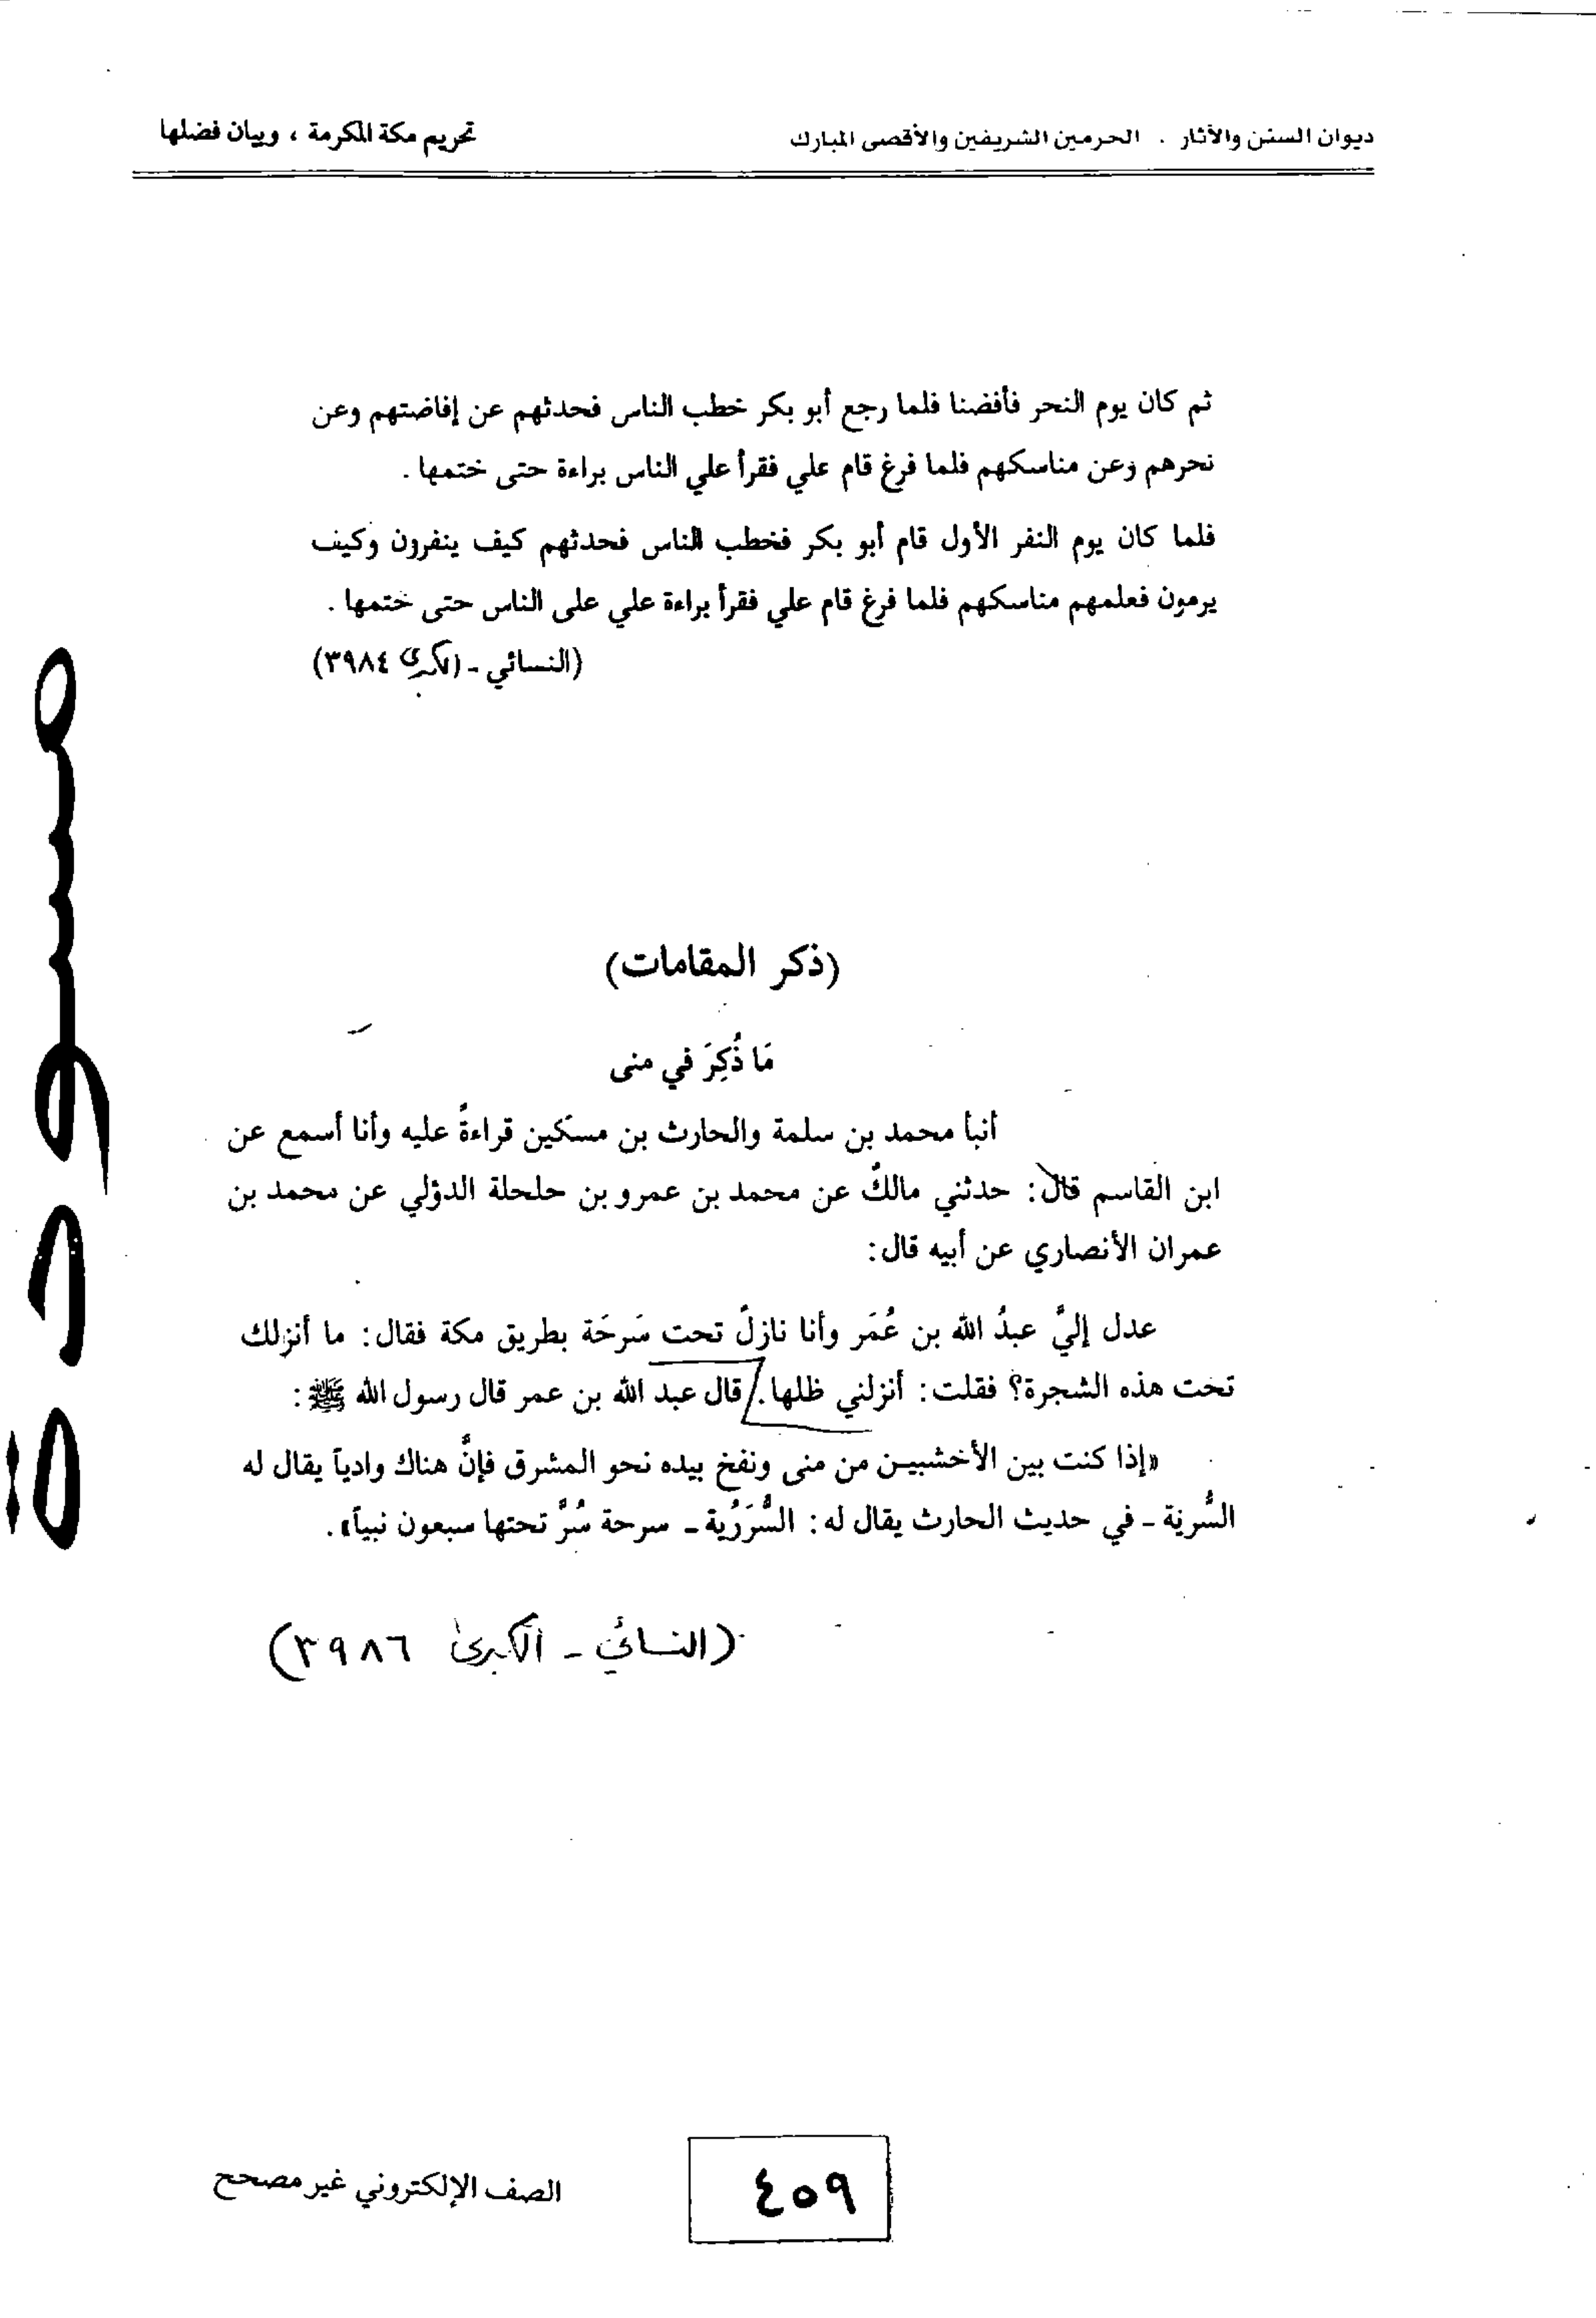 ديوان السنن والآثار . الحرمين الشريفين والأقصى المبارك
تحريم مكة المكرمة ، وبيان فضلها
ثم كان يوم النحر فأفضنا فلما رجع أبو بكر خطب الناس فحدثهم عن إفاضتهم وعن
نحرهم وعن مناسكهم فلما فرغ قام علي فقرأ علي الناس براءة حتى ختمها .
فلما كان يوم النفر الأول قام أبو بكر فخطب الناس فحدثهم كيف ينفرون وكيف
يرمون فعلمهم مناسكهم فلما فرغ قام علي فقرأ براءة علي على الناس حتى ختمها .
(النسائي - الكبرى ٣٩٨٤)
مسودة
(ذكر المقامات)
مَا ذُكِرَ في منى
أنبأ محمد بن سلمة والحارث بن مسكين قراءةً عليه وأنا أسمع عن
ابن القاسم قال: حدثني مالكٌ عن محمد بن عمرو بن حلحلة الدؤلي عن محمد بن
عمران الأنصاري عن أبيه قال:
عدل إليَّ عبدُ الله بن عُمَر وأنا نازلٌ تحت سَرحَة بطريق مكة فقال: ما أنزلك
تحت هذه الشجرة؟ فقلت: أنزلني ظلها. قال عبد الله بن عمر قال رسول الله ﷺ:
«إذا كنت بين الأخشبيـن من منى ونفخ بيده نحو المشرق فإنَّ هناك وادياً يقال له
السُّربَة - في حديث الحارث يقال له: السُّرَرُبة - سرحة سُرَّ تحتها سبعون نبياً».
(النسائي - الكبرى ٣٩٨٦)
٤٥٩
الصف الإلكتروني غير مصحح